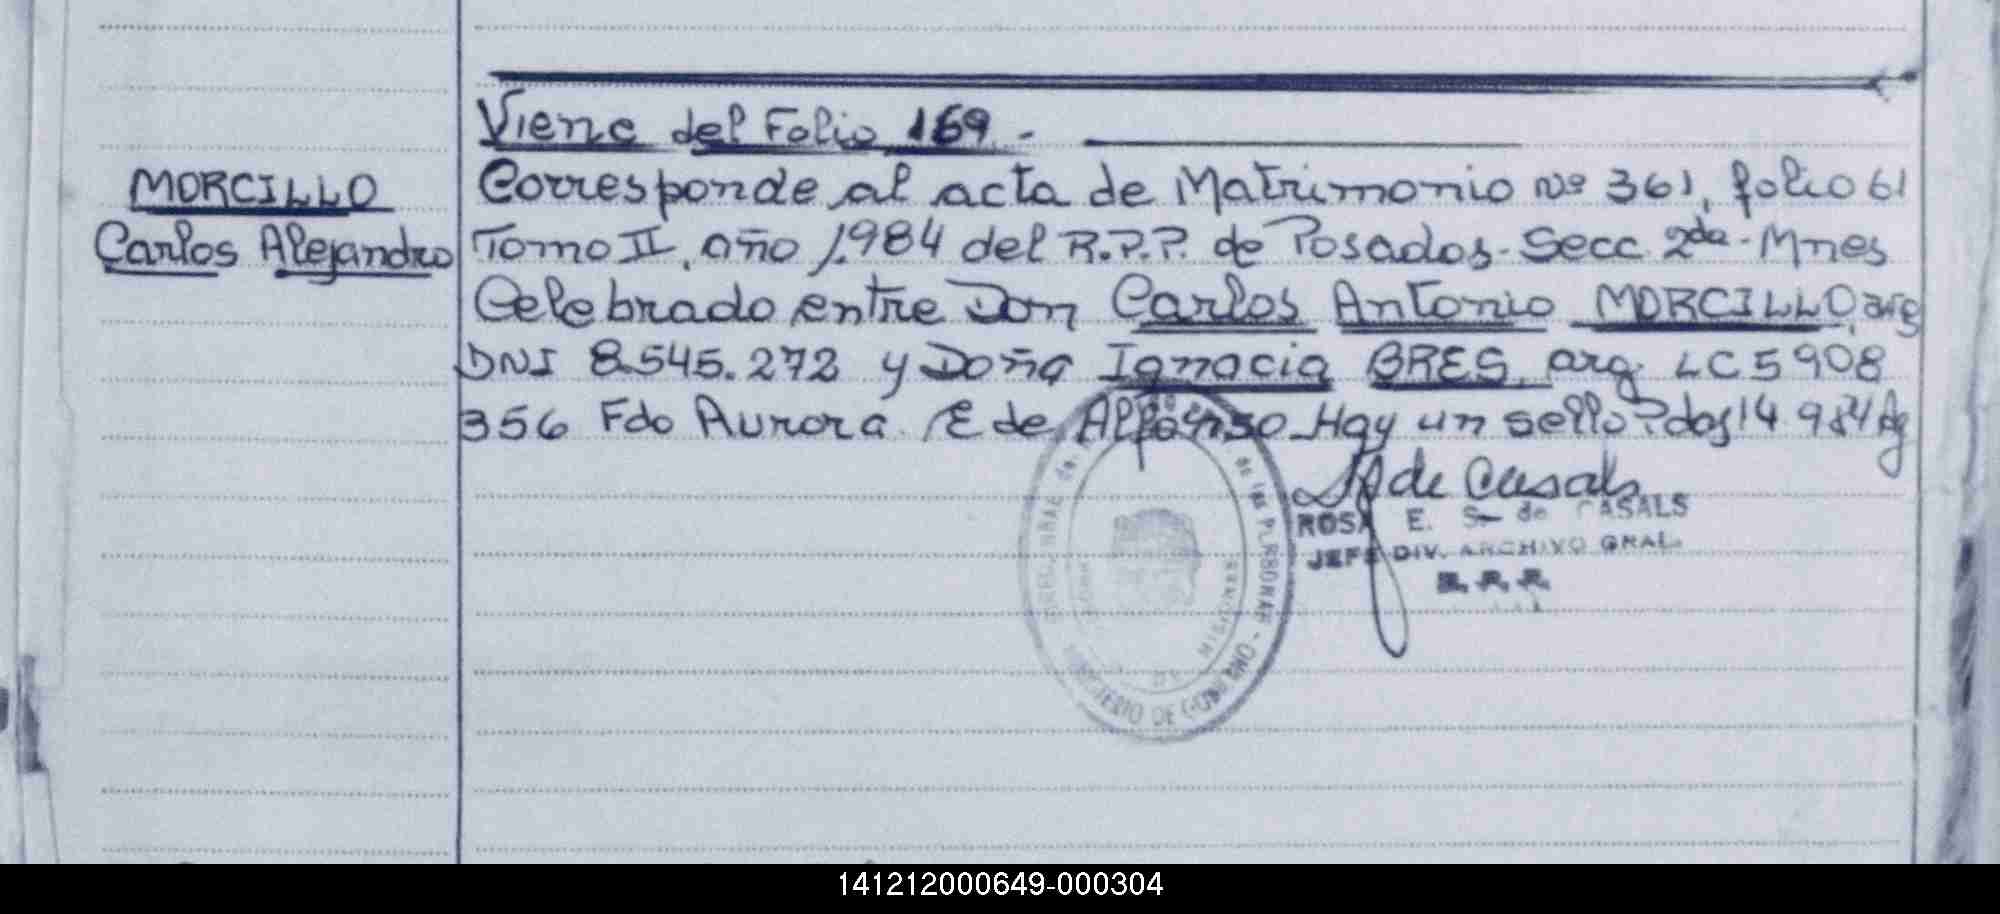 Viene del Folio 169.-
MORCILLO
Carlos Alejandro
Corresponde al acta de Matrimonio Nº 361, folio 61
Tomo II, año 1.984 del R.P.P. de Posadas- Secc. 2da- Mnes
Celebrado entre Don Carlos Antonio MORCILLO, arg
DNI 8.545.272 y Doña Ignacia BRES, arg. LC 5908
356 Fdo Aurora E de Alfonso Hay un sello Pdas 14 9 84
de Casals
ROSA E. S. de CASALS
JEFE DIV. ARCHIVO GRAL.
R.P.P.
de las PERSONAS
MINISTERIO DE GOBIERNO
141212000649-000304